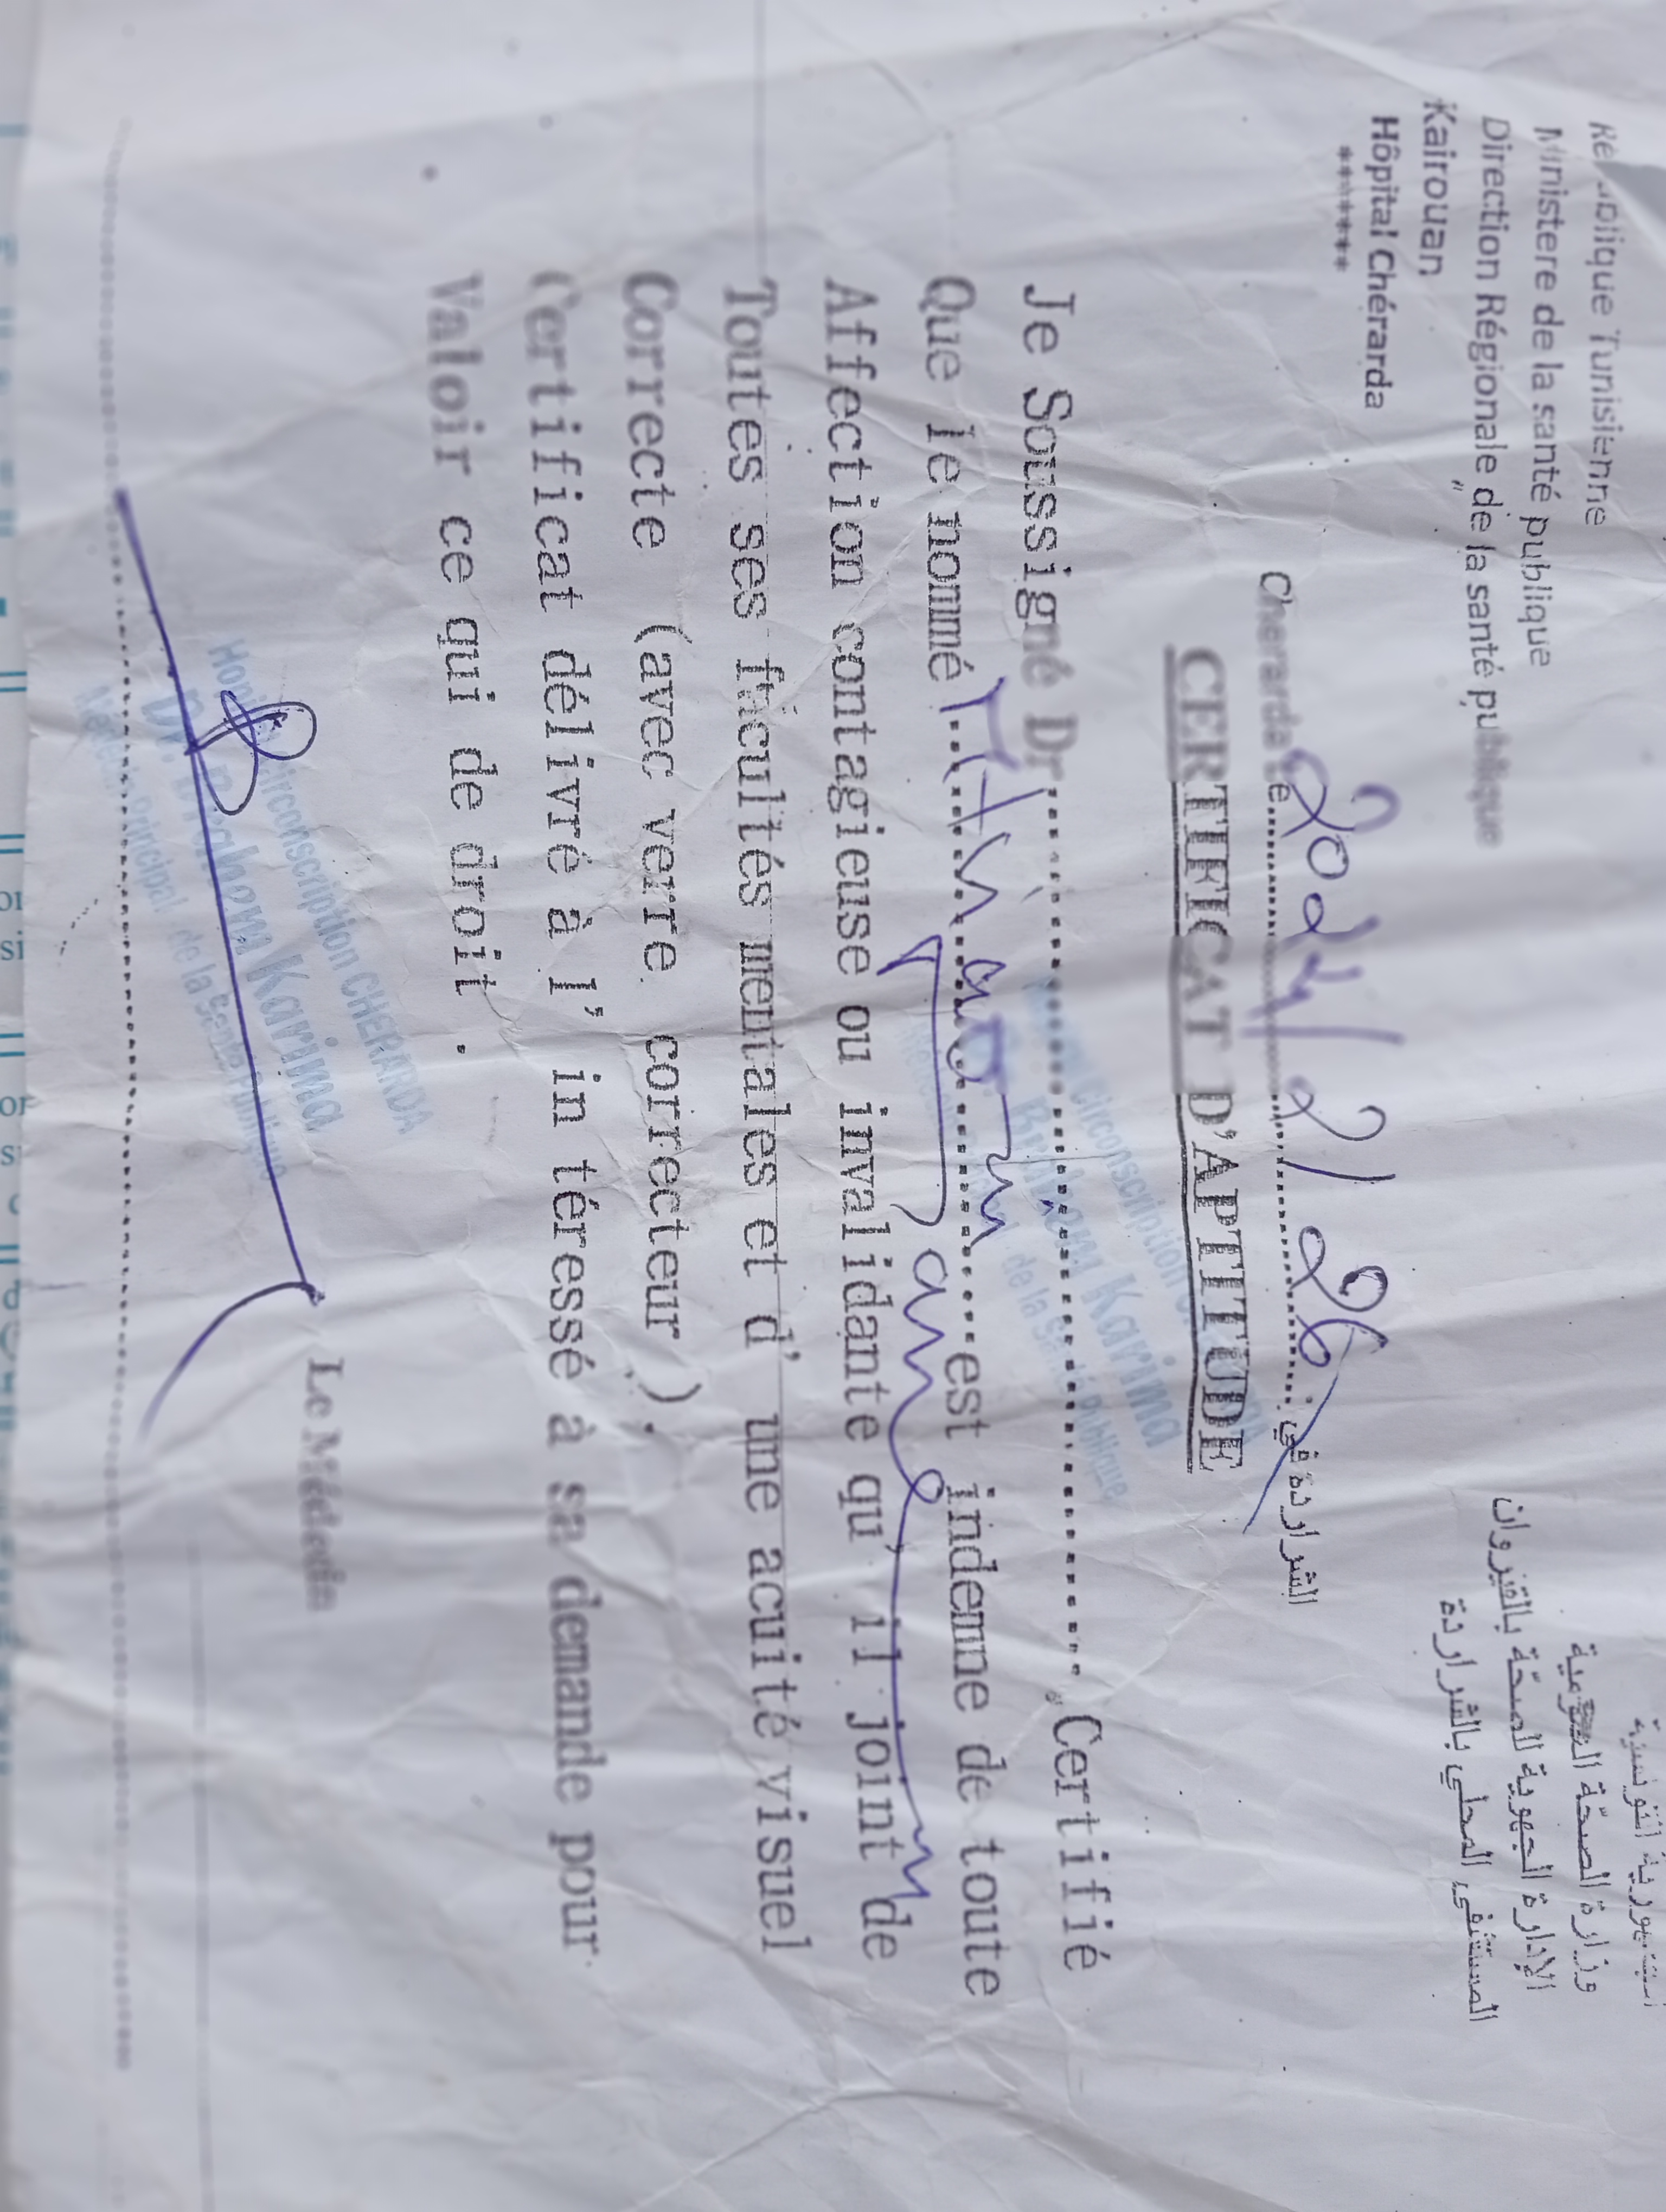 République Tunisienne
Ministere de la santé publique
Direction Régionale de la santé publique
Kairouan
Hôpital Chérarda
******
الجمهورية التونسية
وزارة الصحّة العمومية
الإدارة الجهوية للصحّة بالقيروان
المستشفى المحلي بالشراردة
Cherarda Le 26 الشراردة في :
CERTIFICAT D'APTITUDE
Circonscription
Karima
de la Santé Publique
Je Soussigné Dr Certifié
Que le nommé est indemne de toute
Affection contagieuse ou invalidante qu' il joint de
Toutes ses facultés mentales et d' une acuité visuel
Correcte (avec verre correcteur ).
Certificat délivré à l' in téressé à sa demande pour
Valoir ce qui de droit .
Le Médecin
Circonscription CHERARDA
Karima
Principal de la Santé Publique